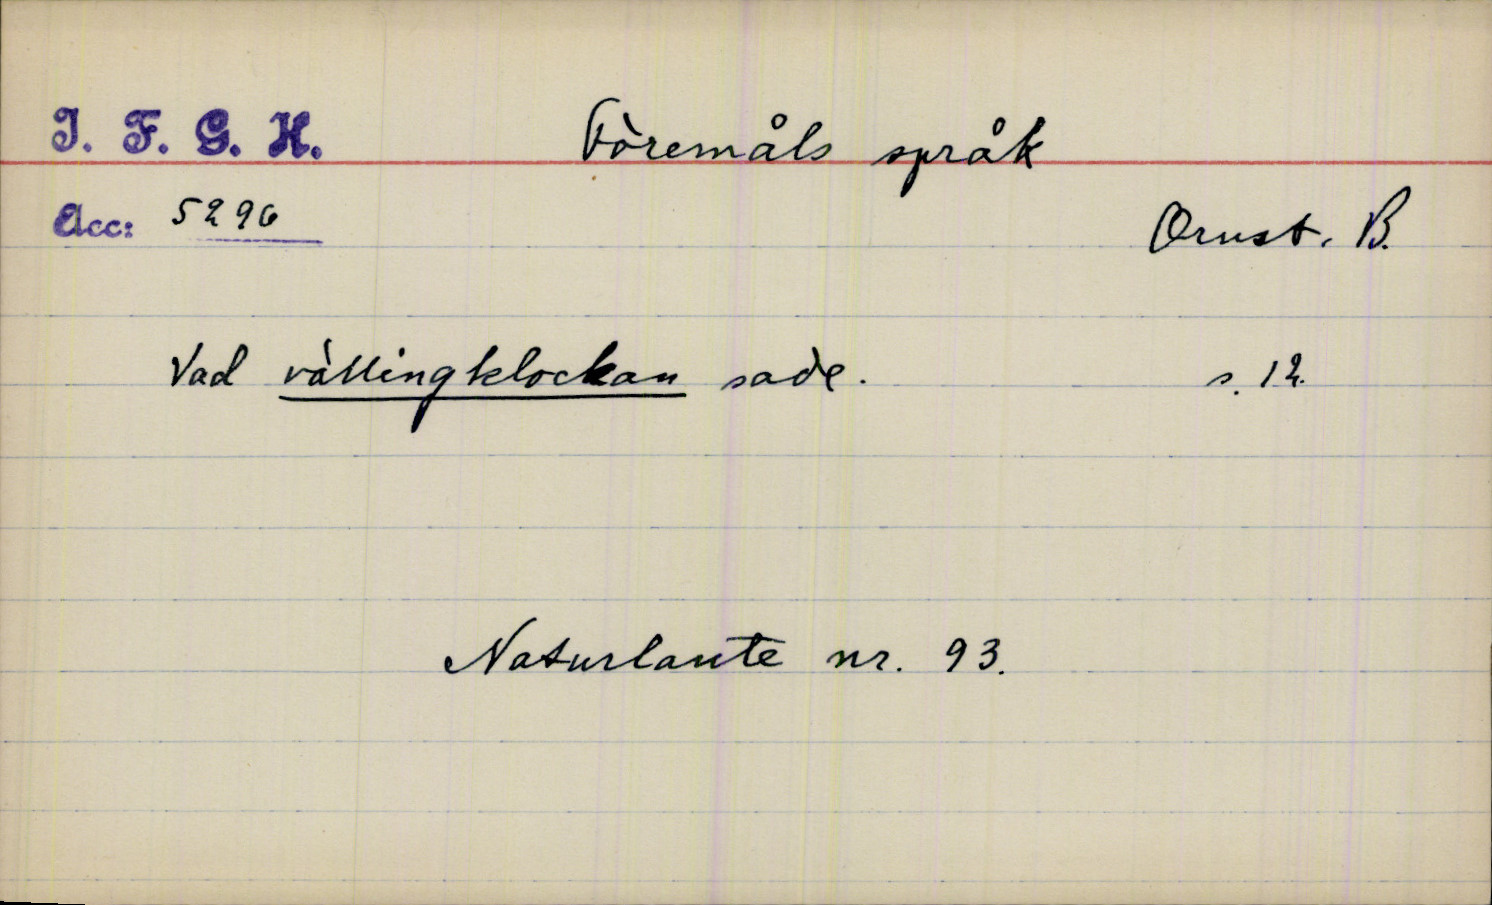 I. F. G. H.
Föremåls språk
Acc: 5296
Ornst. B.
Vad vällingklockan sade.
s. 12.
Naturlaute nr. 93.